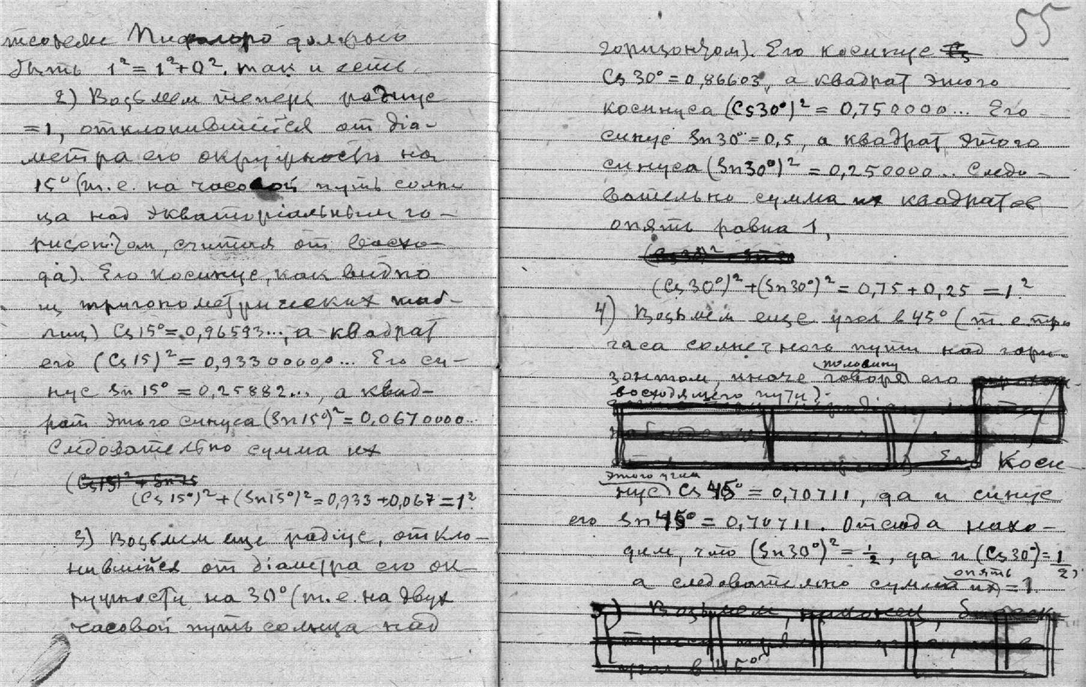 теореме Пифагора должно
быть 1²=1²+0². так и есть
2) Возьмем теперь радиус
=1, отклонившийся от діа-
метра его окружности на
15° (т.е. на часовой путь солн-
ца над экваторіальным го-
ризонтом, считая от восхо-
да). Его косинус, как видно
из тригонометрических таб-
лиц) Cs15°=0,96593..., а квадрат
его (Cs15)²=0,9330000... Его си-
нус Sn15°=0,25882..., а квад-
рат этого синуса (Sn15°)²=0,0670000...
Следовательно сумма их
(Cs15)²+Sn15
(Cs15°)²+(Sn15°)²=0,933+0,067=1²
3) Возьмем еще радіус, откло-
нившийся от діаметра его ок-
ружности на 30° (т.е. на двух
часовой путь солнца над
55
горизонтом). Его косинус Cs
Cs30°=0,86603, а квадрат этого
косинуса (Cs30°)²=0,750000... Его
синус Sn30°=0,5, а квадрат этого
синуса (Sn30°)²=0,250000... Следо-
вательно сумма их квадратов
опять равна 1,
(Cs30°)²+(Sn30°)²=0,75+0,25=1²
4) Возьмем еще угол в 45° (т.е. три
часа солнечного пути над гори-
половину
зонтом, иначе говоря его
восходящего пути).
Коси
этого угла
нус) Cs45°=0,70711, да и синус
его Sn45°=0,70711. Отсюда нахо-
дим, что (Sn30°)²=½, да и (Cs30°)=1/2,
опять
а следовательно сумма их)=1.
5) Возьмем, наконец,
угол в 45°